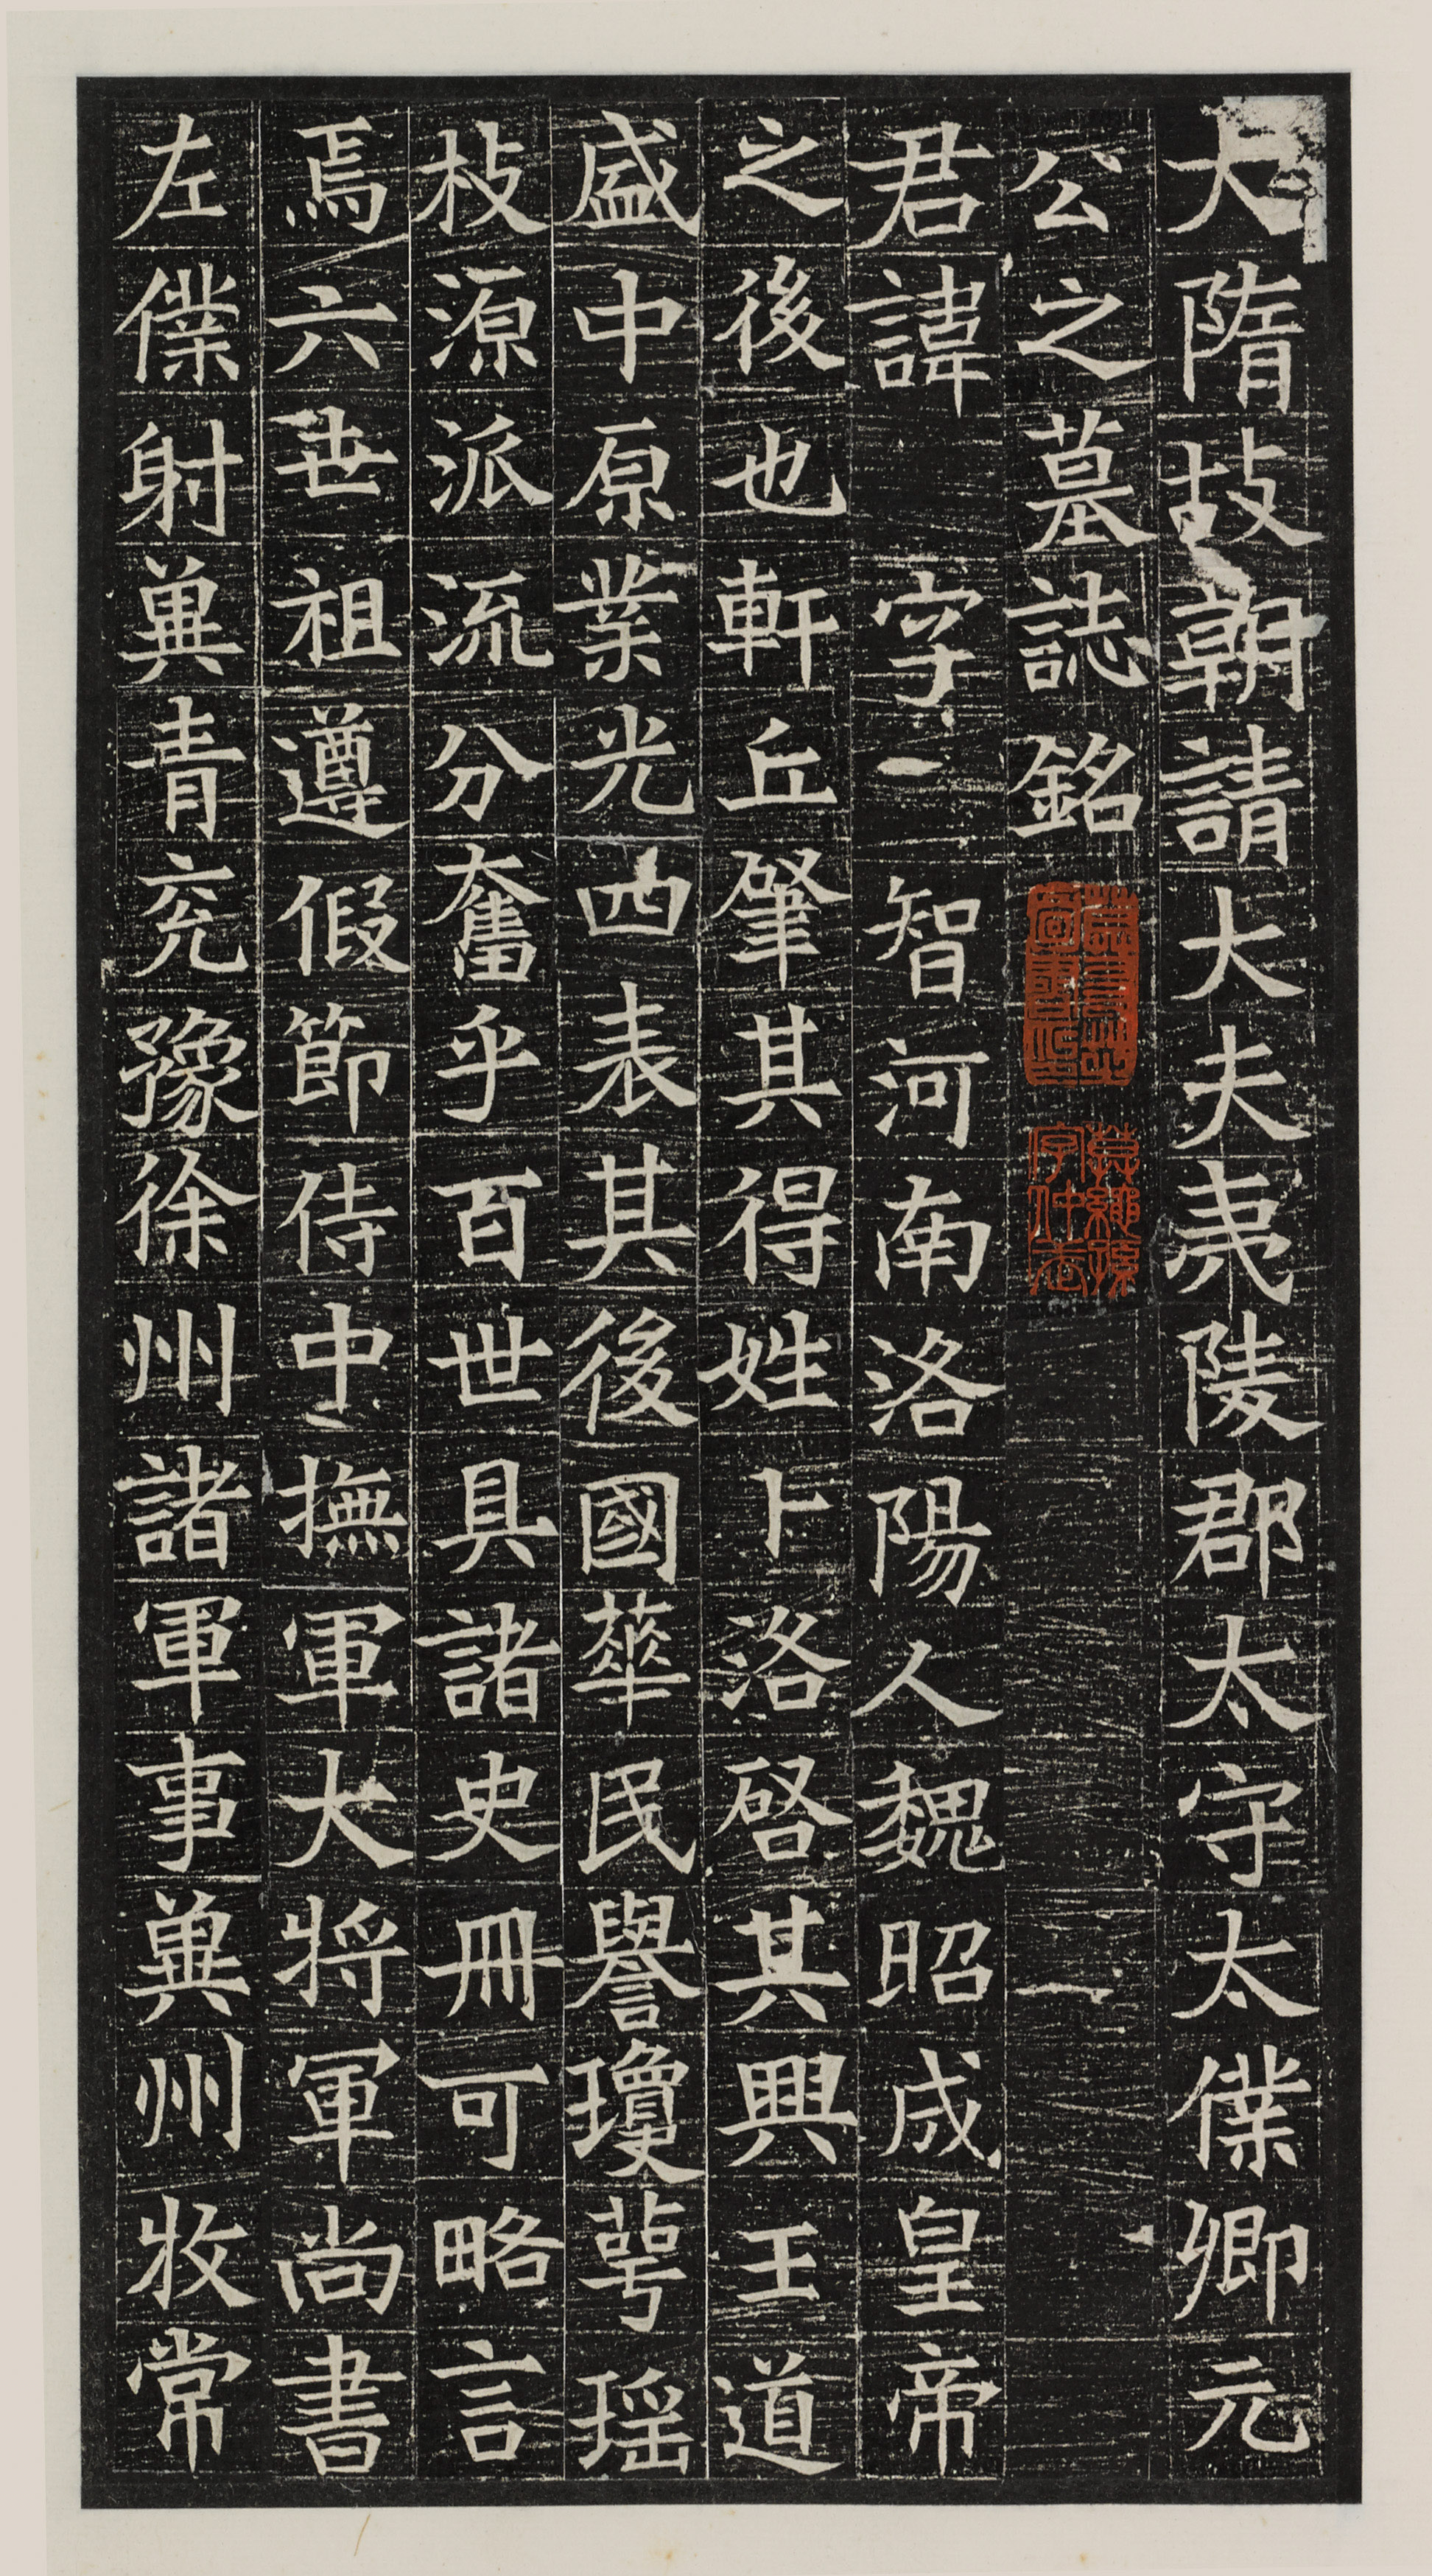 大隋故朝請大夫夷陵郡太守太僕卿元
公之墓誌銘
君諱 字一智河南洛陽人魏昭成皇帝
之後也軒丘肇其得姓卜洛啓其興王道
盛中原業光四表其後國華民譽瓊萼瑶
枝源派流分奮乎百世具諸史冊可略言
焉六世祖遵假節侍中撫軍大將軍尚書
左僕射冀青兗豫徐州諸軍事冀州牧常
莫繩孫字仲武